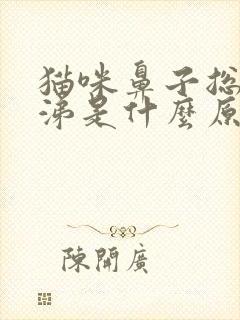 猫咪鼻子总
涕是什麼原
陳開廣